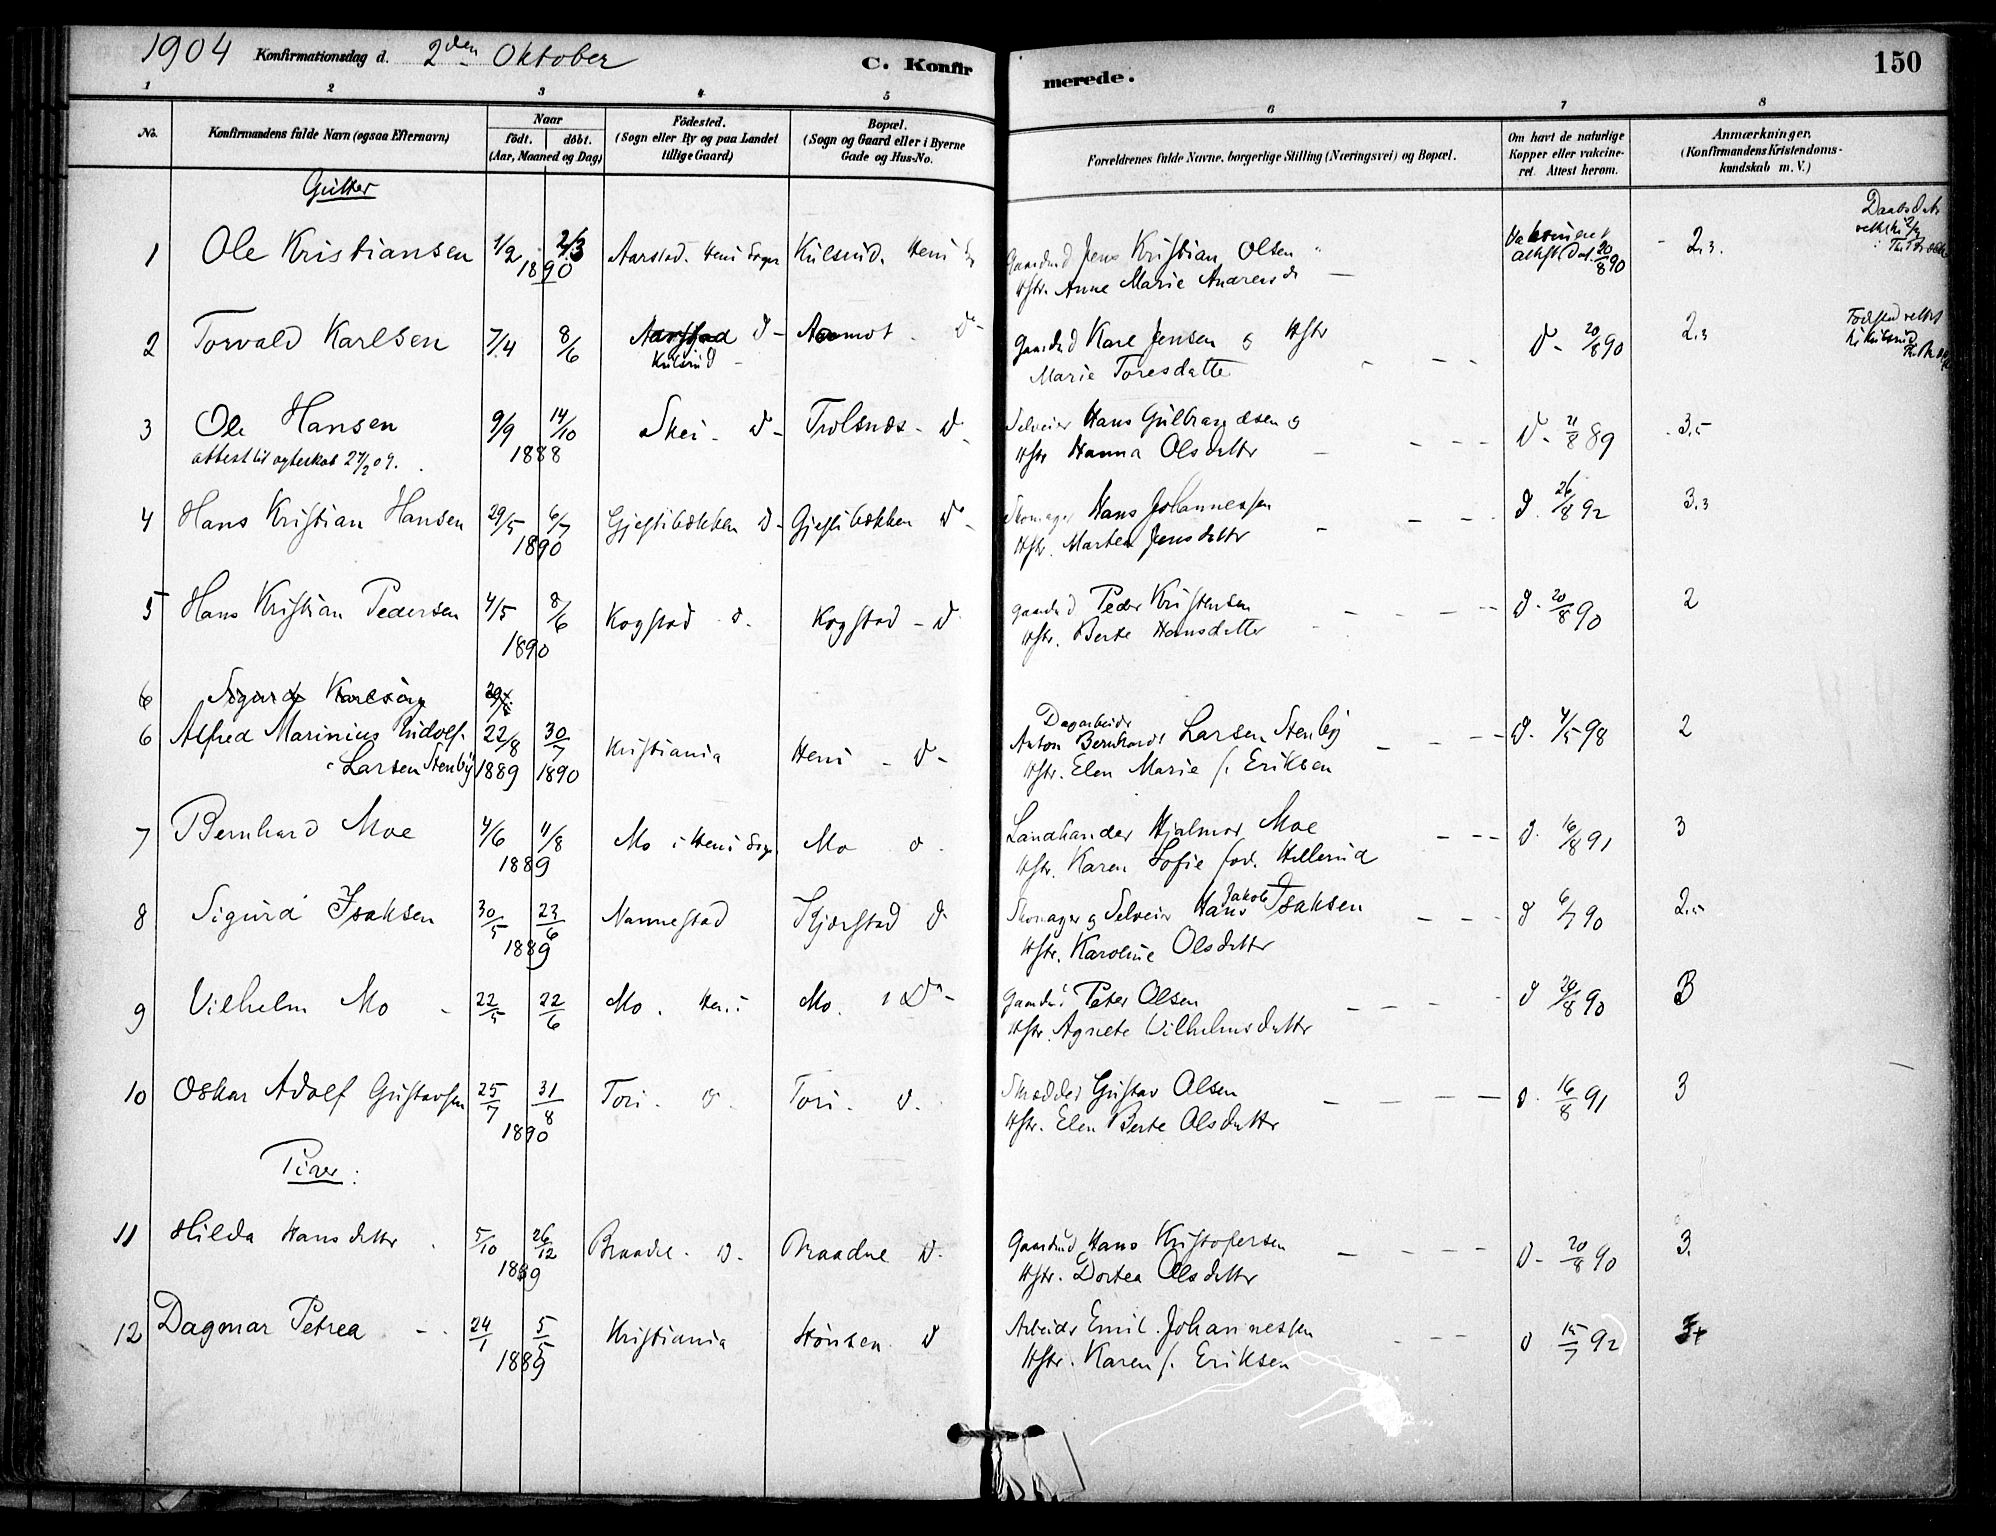 1904 Konfirmationsdag d. 2den Oktober
C. Konfirmerede.
150
1 2 3 4 5 6 7 8
No.
Konfirmandens fulde Navn (ogsaa Efternavn)
Naar
födt. döbt.
(Aar, Maaned og Dag)
Födested.
(Sogn eller By og paa Landet
tillige Gaard)
Bopæl.
(Sogn og Gaard eller i Byerne
Gade og Hus-No.
Forældrenes fulde Navne, borgerlige Stilling (Næringsvei) og Bopæl.
Om havt de naturlige
Kopper eller vakcine-
ret. Attest herom.
Anmærkninger.
(Konfirmandens Kristendoms-
kundskab m. V.)
Gutter
1 Ole Kristiansen 1/2 2/3 Aarstad. Heni Sogn Kulsrud. Heni Gaardbd Jens Kristian Olsen 20/8 90 2,3.
1890 Hstr. Anne Marie
2 Torvald Karlsen 7/4 8/6 Aarstad d- Aamot. d- Gaardbd Karl Jensen o Hstr d- 20/8 90 2,3
Kulsrud Marie Toresdatter
3 Ole Hansen 9/9 14/10 Skei - d- Trolsnæs - d. Selveier Hans Gulbrandsen o d- 21/8 89 3,5
attest til ægteskab 27/2 09. 1888 Hstr Hanna Olsdatter
4 Hans Kristian Hansen 29/5 6/7 Gjestibækken d- Gjestibækken d- Skomager Hans Johannessen d. 26/8 92 3,3
1890 Hstr. Martea Jensdatter
5 Hans Kristian Pedersen 4/5 8/6 Kogstad d. Kogstad - d Gaardbd Peder Kristensen d. 20/8 90 2
1890 Hstr. Berte Hansdatter
6 Sigurd Karlsen
6 Alfred Marinius Rudolf 22/8 30/7 Kristiania Heni - d- Dagarbeider
Larsen Stenby 1889 1890 Anton Bernhard Larsen Stenby d. 4/5 98 2
Hstr. Elen Marie f. Eriksen
7 Bernhard Moe 4/6 11/8 Mo i Heni Sogn Mo d. Landhandler Hjalmar Moe d. 16/8 91 3
1889 Hstr. Karen Sofie fød. Hellerud
8 Sigurd Isaksen 30/5 23/6 Nannestad Kjærstad d. Skomager og Selveier Hans Jakob Isaksen d 6/7 90 2,5
1889 Hstr. Karoline Olsdatter
9 Vilhelm Mo 22/5 22/6 Mo. Heni Mo. d- Gaardbr Peter Olsen d 20/8 90 3
Hstr. Agnete Vilhelmsdatter
10 Oskar Adolf Gustavsen 25/7 31/8 Tori. d. Tori. d. Skrædder Gustav Olsen d. 16/8 91 3
1890 Hstr. Elen Berte Olsdatter
Piger:
11 Hilda Hansdatter 5/10 26/12 Braadne. d. Braadne d. Gaardbd Hans Kristofersen d- 20/8 90 3.
1889 Hstr. Dortea Olsdatter
12 Dagmar Petrea 24/1 5/5 Kristiania Hönsen. d Arbeider Emil Johannessen d 15/7 92
1889 Hstr. Karen f. Eriksen